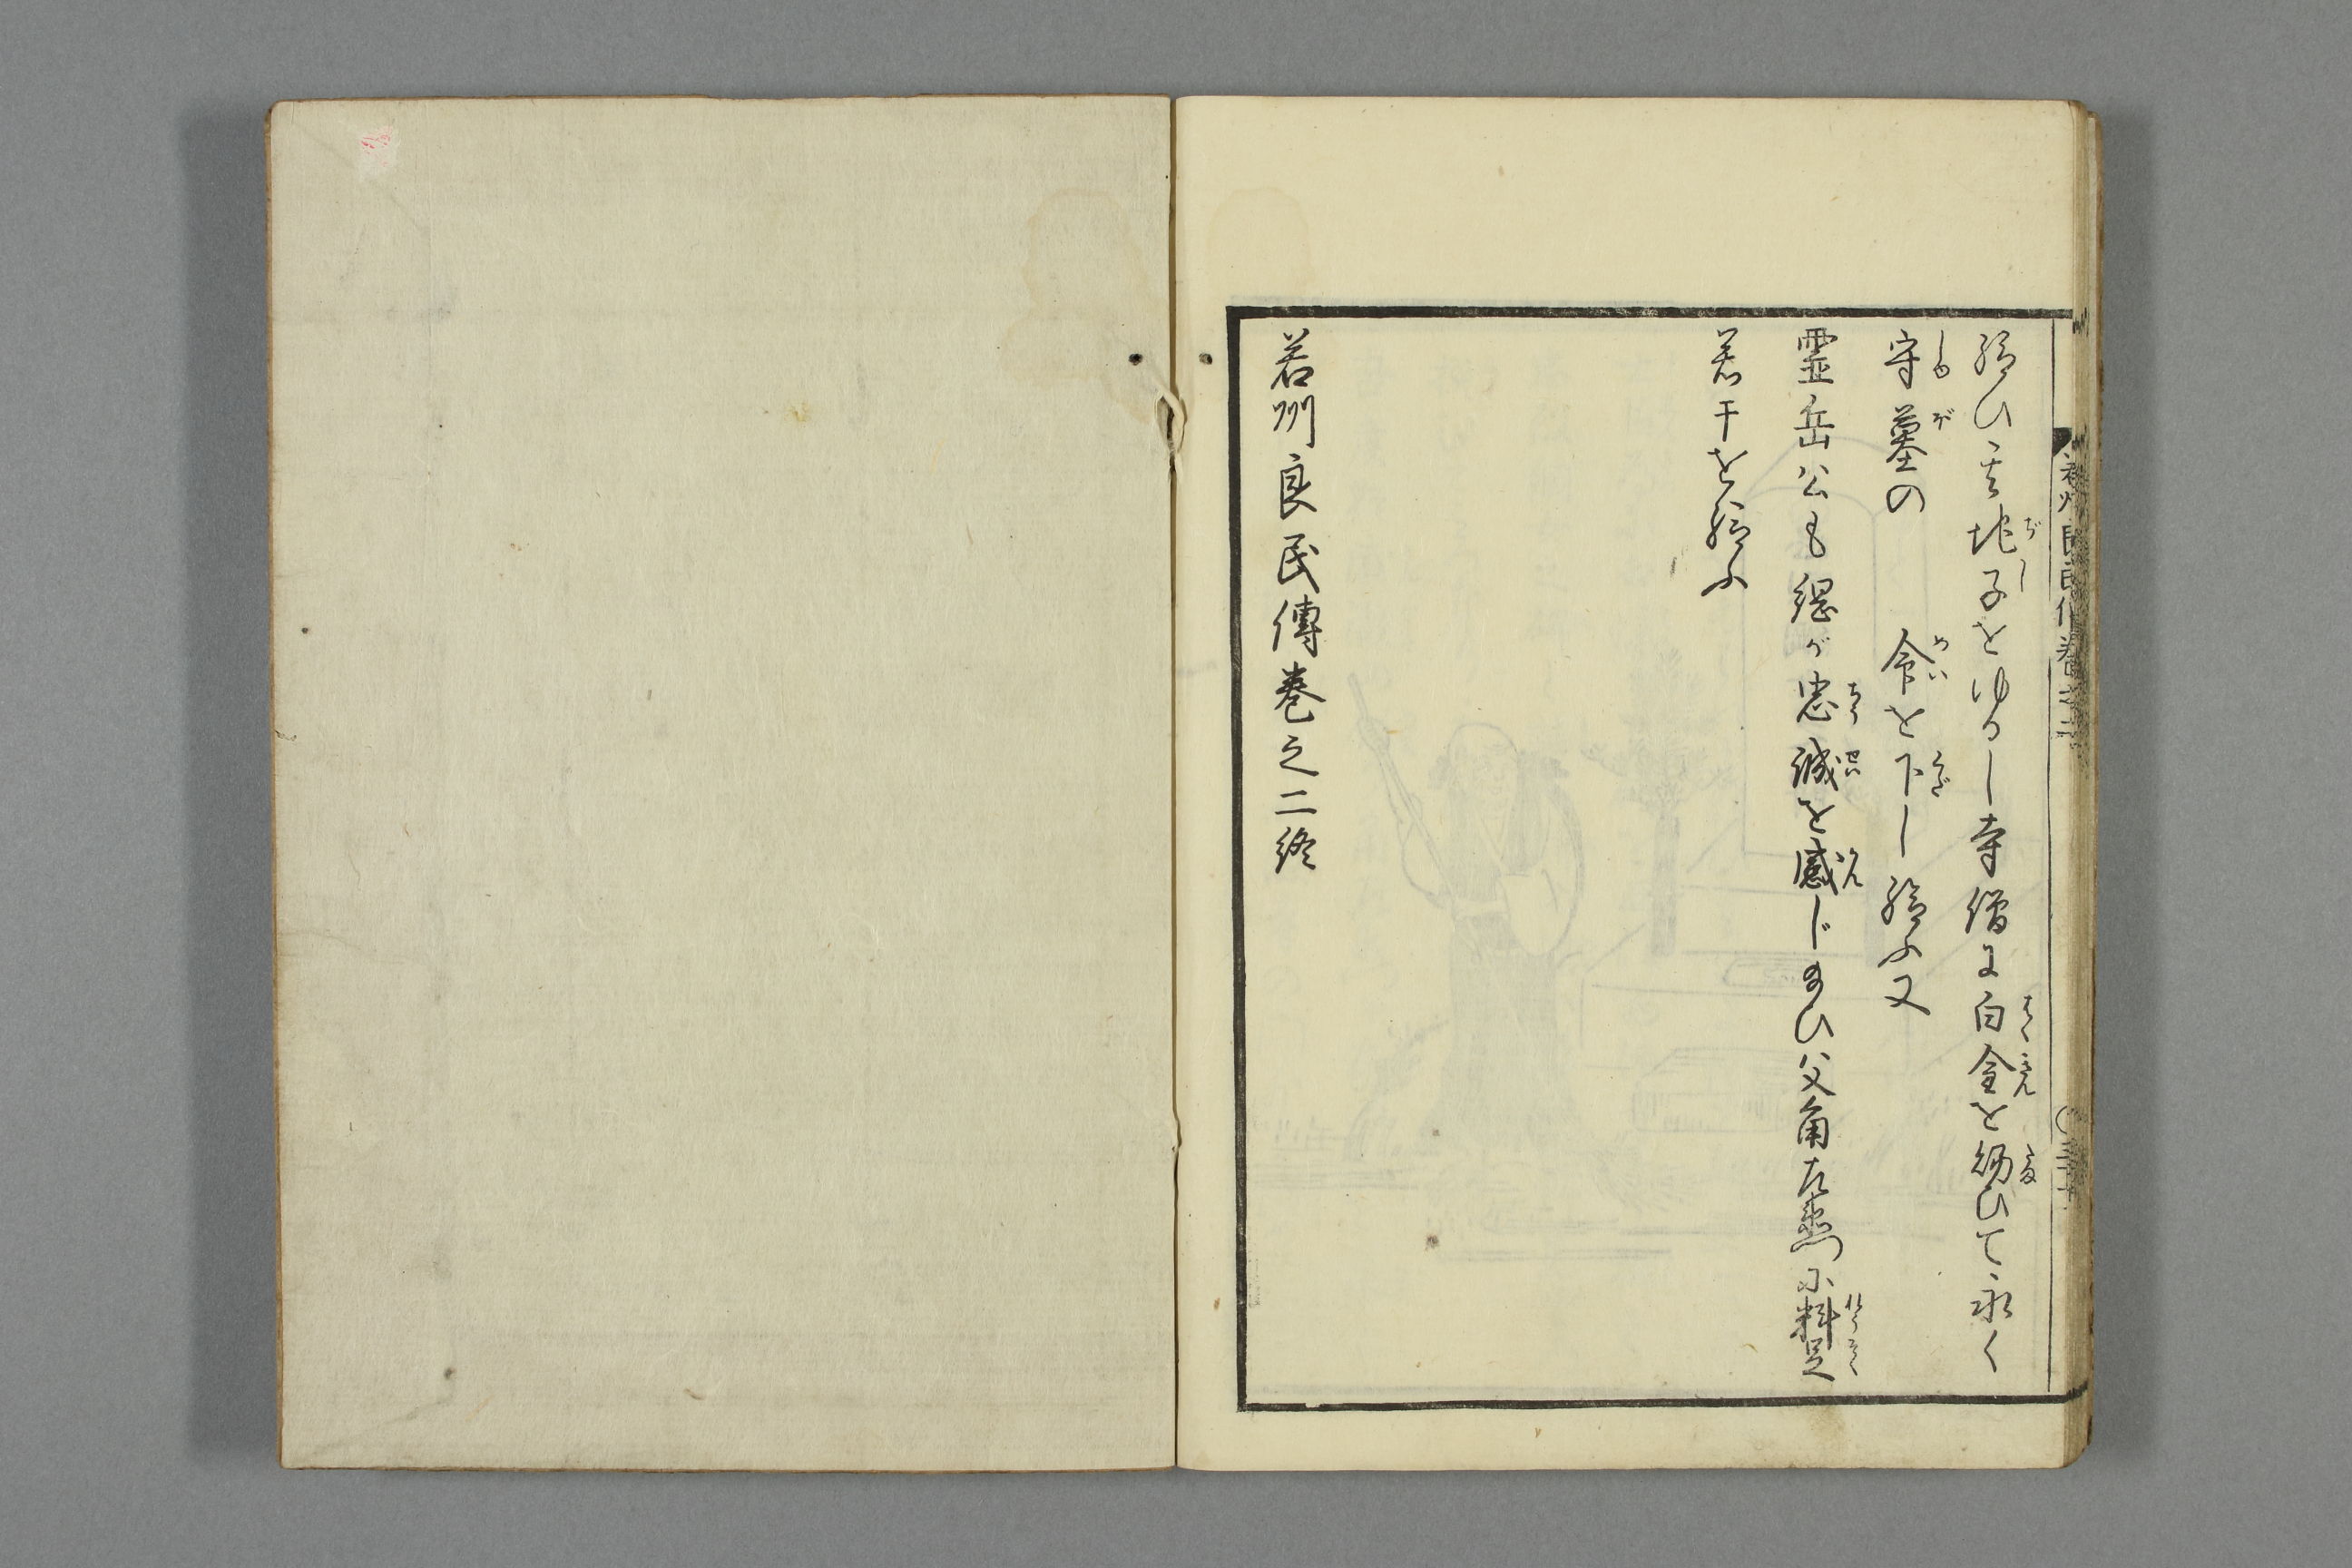 給ひ其地子をゆるし寺僧に白金を納ひて永く
守墓の　令を下し給ふ又
霊岳公も綱が忠誠を感じ給ひ父角左衛門に料足
若干を給ふ
若州良民傳巻之二終